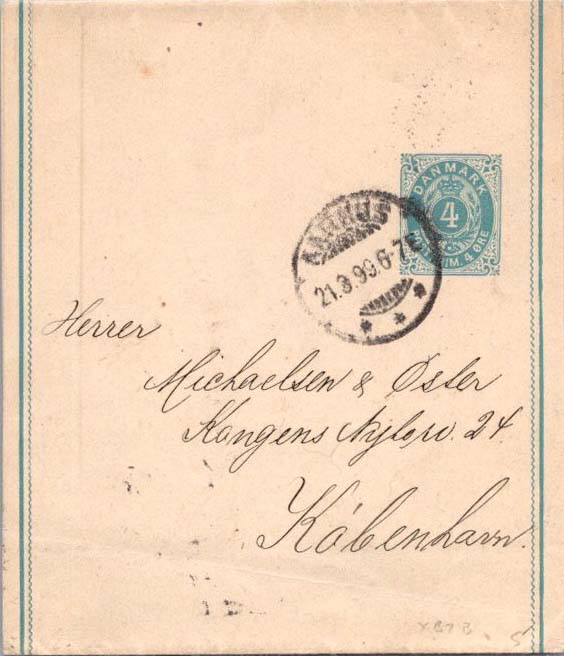 DANMARK
4
FRIM. 4 ØRE
AARHUS
21.3.99. 6-7 E
Herrer
Michaelsen & Øster
Kongens Nytorv. 24.
København.